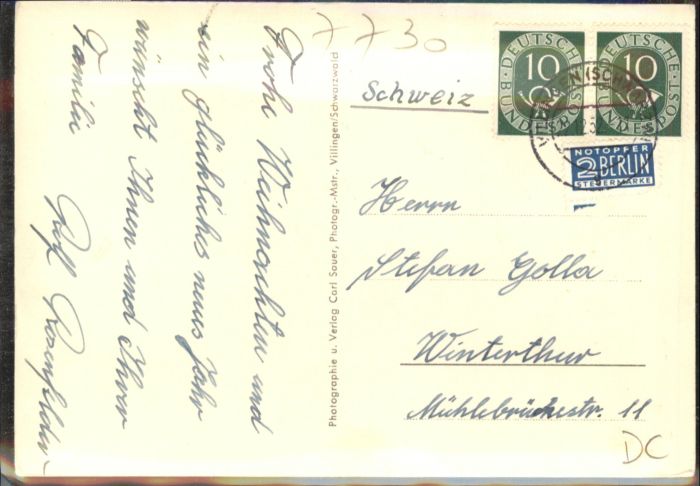 7730
Frohe Weihnachten und
ein glückliches neues Jahr
wünscht Ihnen und Ihrer
Familie
Rolf Rosenfelder
Photographie u. Verlag Carl Sauer, Photogr.-Mstr., Villingen/Schwarzwald
Schweiz
10
DEUTSCHE BUNDESPOST
10
DEUTSCHE BUNDESPOST
NOTOPFER
2 BERLIN
STEUERMARKE
Herrn
Stefan Golla
Winterthur
Mühlebrückestr. 11
DC